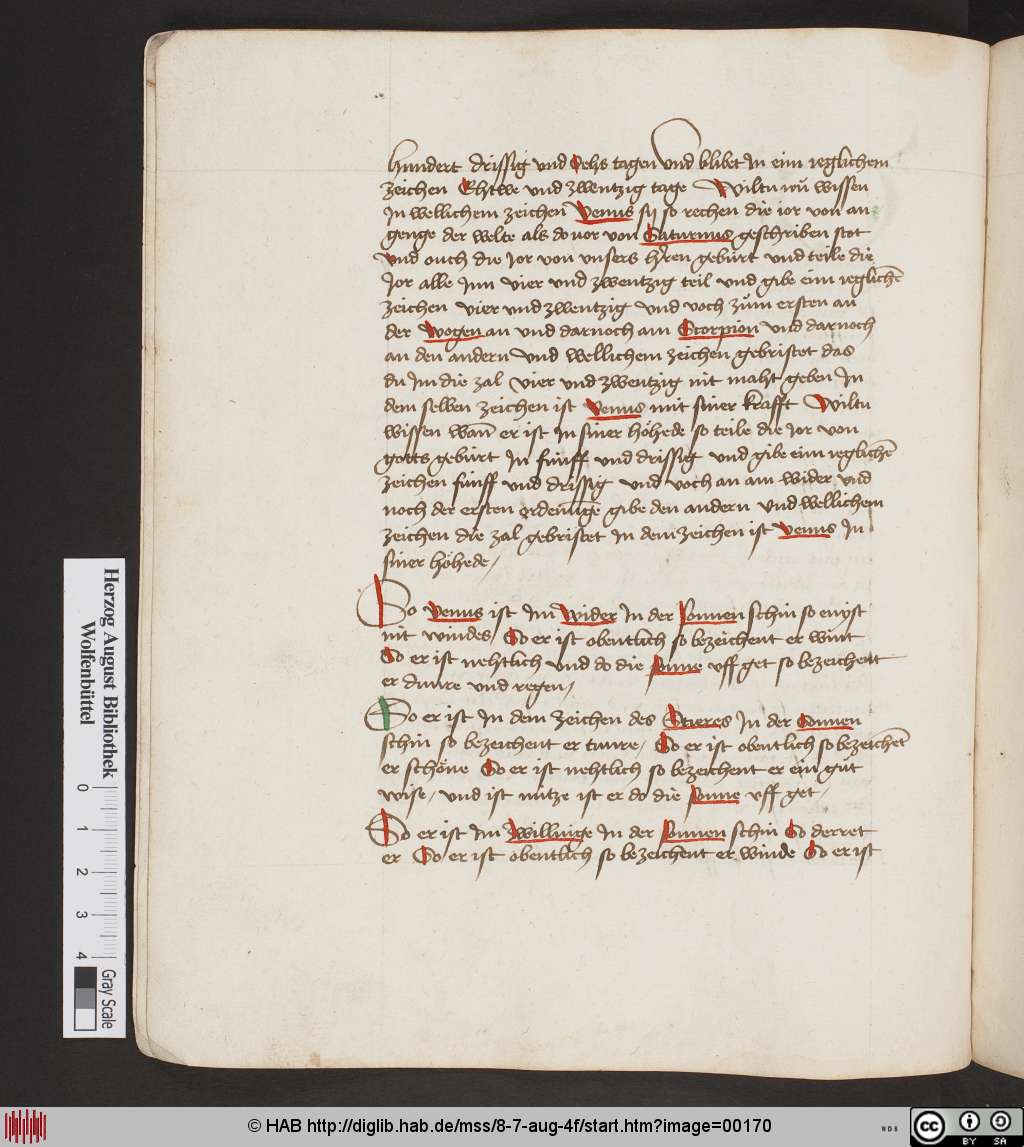 hundert drissig und Sehs tagen und blibet In eim ieglichem
zeichen Ehtwe und zwentzig tage Wiltu nů wissen
In wellichem zeichen Venus sy so rechen die ior von an
genge der welte als do vor von Saturnus geschriben stot
und ouch die Jor von unsers hren gebúrt und teile die
Jor alle Inn vier und zwentzig teil und gibe eim ieglichē
zeichen vier und zwentzig und voch zům ersten an
der Wogen an und darnoch am Scorpion und darnoch
an den andern und wellichem zeichen gebristet das
du Im die zal vier und zwentzig nit maht geben In
dem selben zeichen ist Venus mit siner krafft Wiltu
wissen wan̄ er ist In siner höhede so teile die Jor von
gotts gebúrt In fúnff und drissig und gibe eim ieglichē
zeichen fúnff und drissig und voch an am wider und
noch der ersten ordenūge gibe den andern und wellichem
zeichen die zal gebristet In dem zeichen ist Venus In
siner höhede /
So Venus ist Im Wider In der Sonnen schin so enist
nit windes / So er ist obentlich so bezeichent er wint
So er ist nehtlich und do die sunne uff get so bezeichent
er dunre und regen /
So er ist In dem zeichen des Stieres In der Sonnen
schin so bezeichent er tunre / So er ist obentlich so bezeichēt
er schöne So er ist nehtlich so bezeichent er ein gůt
wise / und ist nútze ist er do die sonne uff get /
So er ist Im Zwillinge In der Sonnen schin So derret
er So er ist obentlich so bezeichent er winde So er ist
Herzog August Bibliothek
Wolfenbüttel
0 1 2 3 4
Gray Scale
© HAB http://diglib.hab.de/mss/8-7-aug-4f/start.htm?image=00170
WDB
cc BY SA